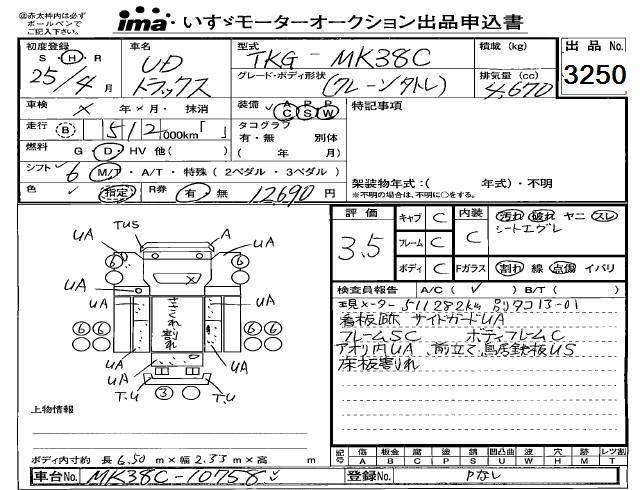 ㊟赤太枠内は必ず
ボールペンで
ご記入下さい。
ima・いすゞモーターオークション出品申込書
初度登録
S・H・R
25/4月
車名
UD
トラックス
型式
TKG-MK38C
グレード・ボディ形状
(クレーンクトレ)
積載 (kg)
排気量 (cc)
4,670
出品 No.
3250
車検 × 年×月・抹消
装備 A P P
C S W
特記事項
走行 (B) 512,000km「 」
タコグラフ
有・無 別体
( 年 月)
燃料 G・D・HV 他( )
シフト 6 M/T・A/T・特殊 (2ペダル・3ペダル)
色 指定 R券 有・無 12690円
架装物年式:( 年式)・不明
※不明の場合は、不明に○をする。
評価
3.5
キャブ C
フレーム C
ボディ C
内装 C
汚れ 破れ ヤニ スレ
シートエグレ
Fガラス 割れ 線 点傷 イバリ
検査員報告 A/C( ✓ ) B/T( )
現メーター511282km 記タコ13-01
看板跡 サイドガードUA
フレームSC ボディフレームC
アオリ内UA、前立て、鳥居鉄板US
床板割れ
TUS A
UA UA
6 6
ささくれ
割れ
6 6 6 6
UA UA
UA UA
T.U 3 T.U
上物情報
ボディ内寸約 長 6.50 m×幅 2.33 m×高 m
記号 傷 板金 腐 塗 錆 凹 凸 曲 波 穴 ミス レツ割
A B C P S U W H M T
車台No. MK38C-10758
登録No. Pなし